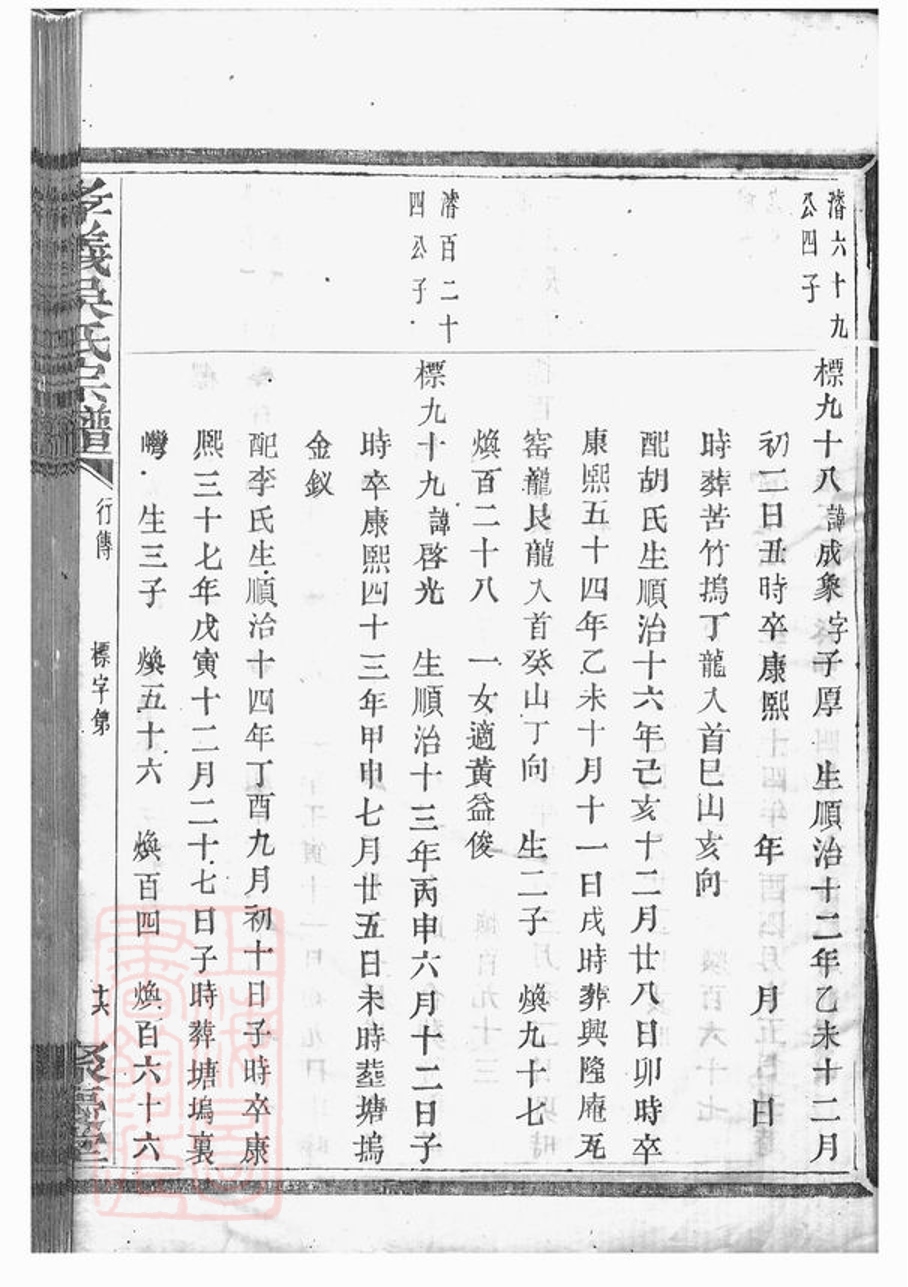 濳六十九
公四子
標九十八 諱成象 字子厚 生順治十二年乙未十二月
初二日丑時卒康熙 年 月 日
時葬苦竹塢丁龍入首巳山亥向
配胡氏生順治十六年己亥十二月廿八日卯時卒
康熙五十四年乙未十月十一日戌時葬興隆庵瓦
窑龍艮龍入首癸山丁向 生二子 煥九十七
煥百二十八 一女適黃益俊
濳百二十
四公子
標九十九 諱啓光 生順治十三年丙申六月十二日子
時卒康熙四十三年甲申七月廿五日未時塟塘塢
金釵
配李氏生順治十四年丁酉九月初十日子時卒康
熈三十七年戊寅十二月二十七日子時葬塘塢裏
彎 生三子 煥五十六 煥百四 煥百六十六
孝義吳氏宗譜
行傳
標字第
十六
聚 堂